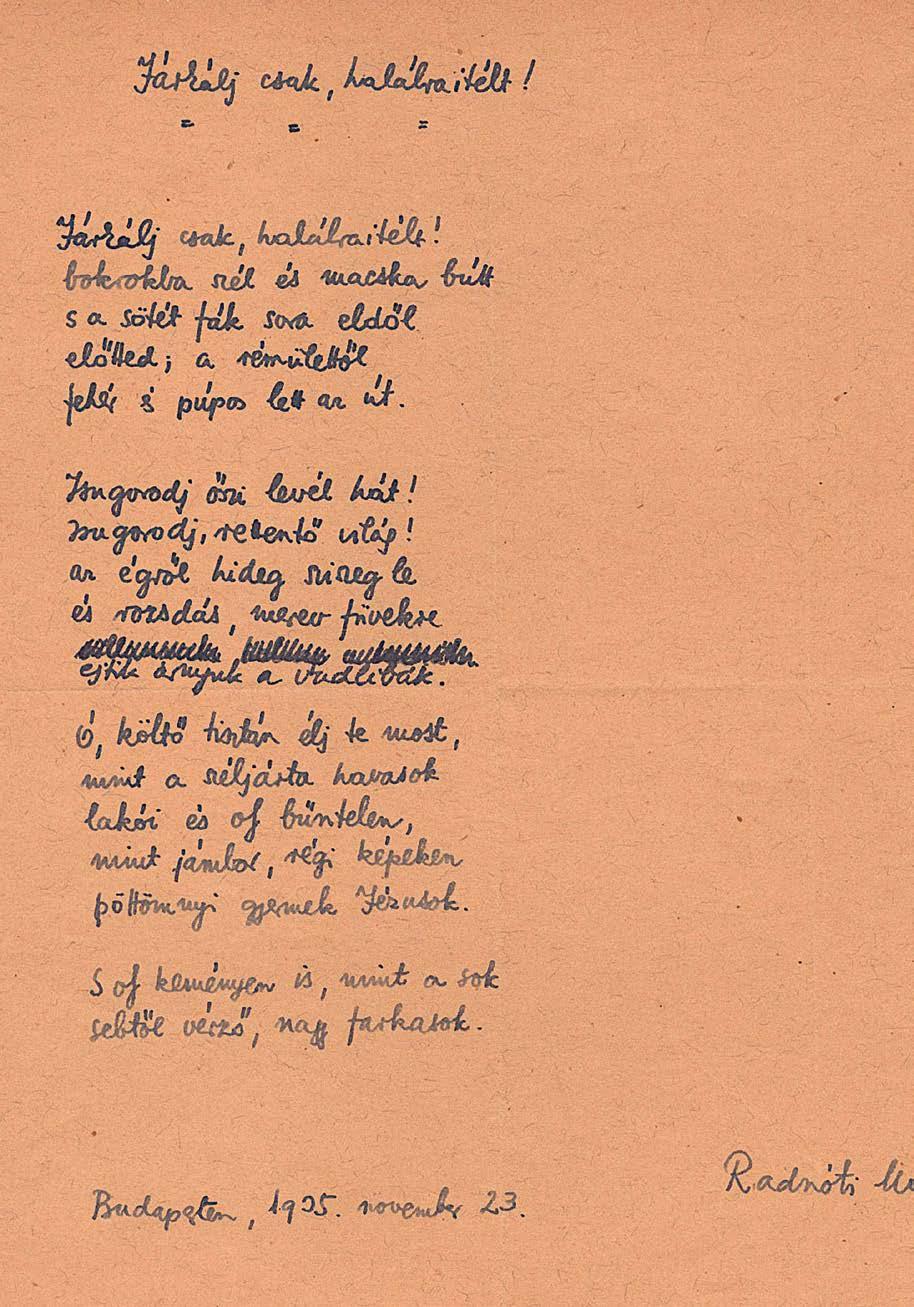 Járkálj csak, halálraitélt!
Járkálj csak, halálraitélt!
bokrokba szél és macska bútt
s a sötét fák sora eldől
előtted; a rémülettől
fehér és púpos lett az út.
Zsugorodj őszi levél hát!
Zsugorodj, rettentő világ!
az égről hideg sziszeg le
és rozsdás, merev füvekre
ejtik árnyuk a vadlibák.
Ó, költő tisztán élj te most,
mint a széljárta havasok
lakói és oly bűntelen,
mint jámbor, régi képeken
pöttömnyi gyermek Jézusok.
S oly keményen is, mint a sok
sebtől vérző, nagy farkasok.
Radnóti
Budapesten, 1935. november 23.